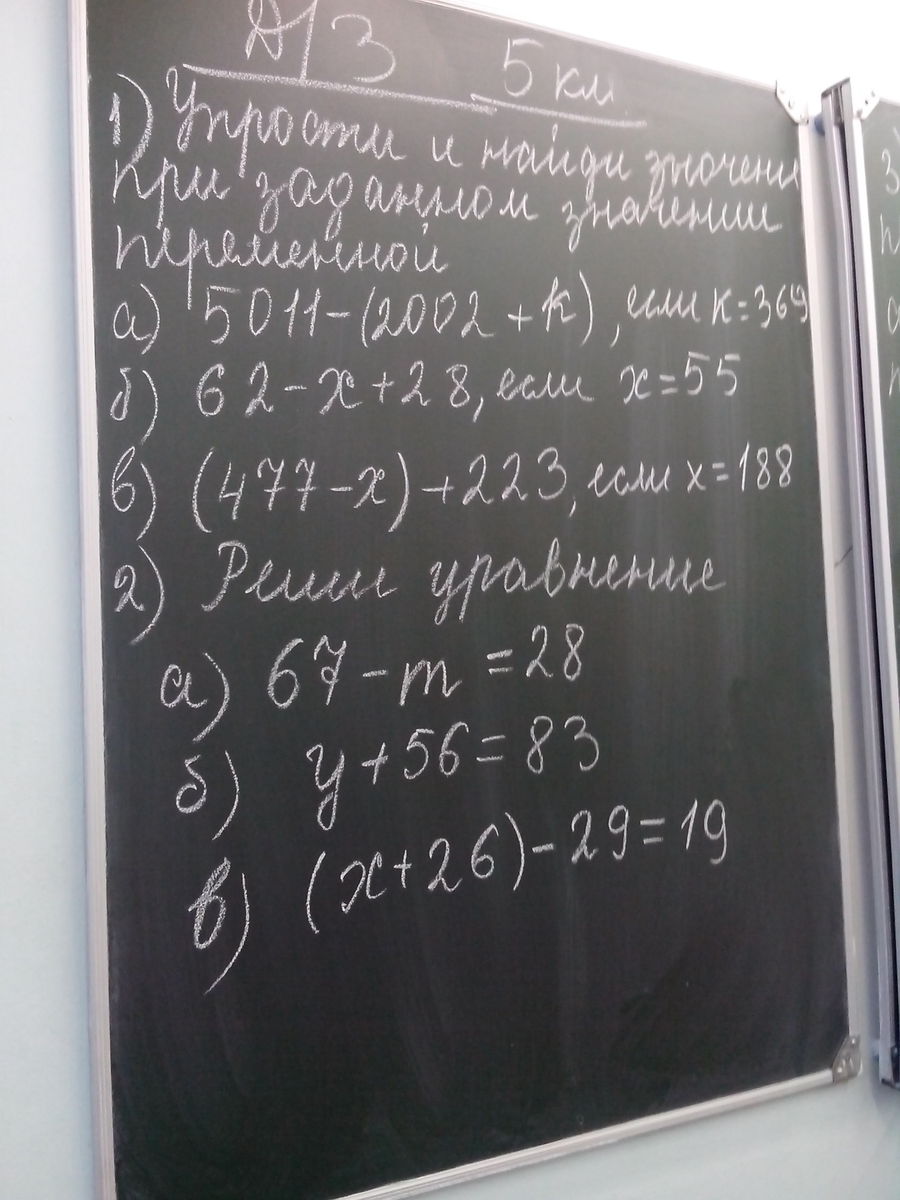 Д/З 5 кл
1) Упрости и найди значени
при заданном значении
переменной
а) 5011-(2002+k), если k=369
б) 62-x+28, если x=55
в) (477-x)+223, если x=188
2) Реши уравнение
а) 67-m=28
б) y+56=83
в) (x+26)-29=19